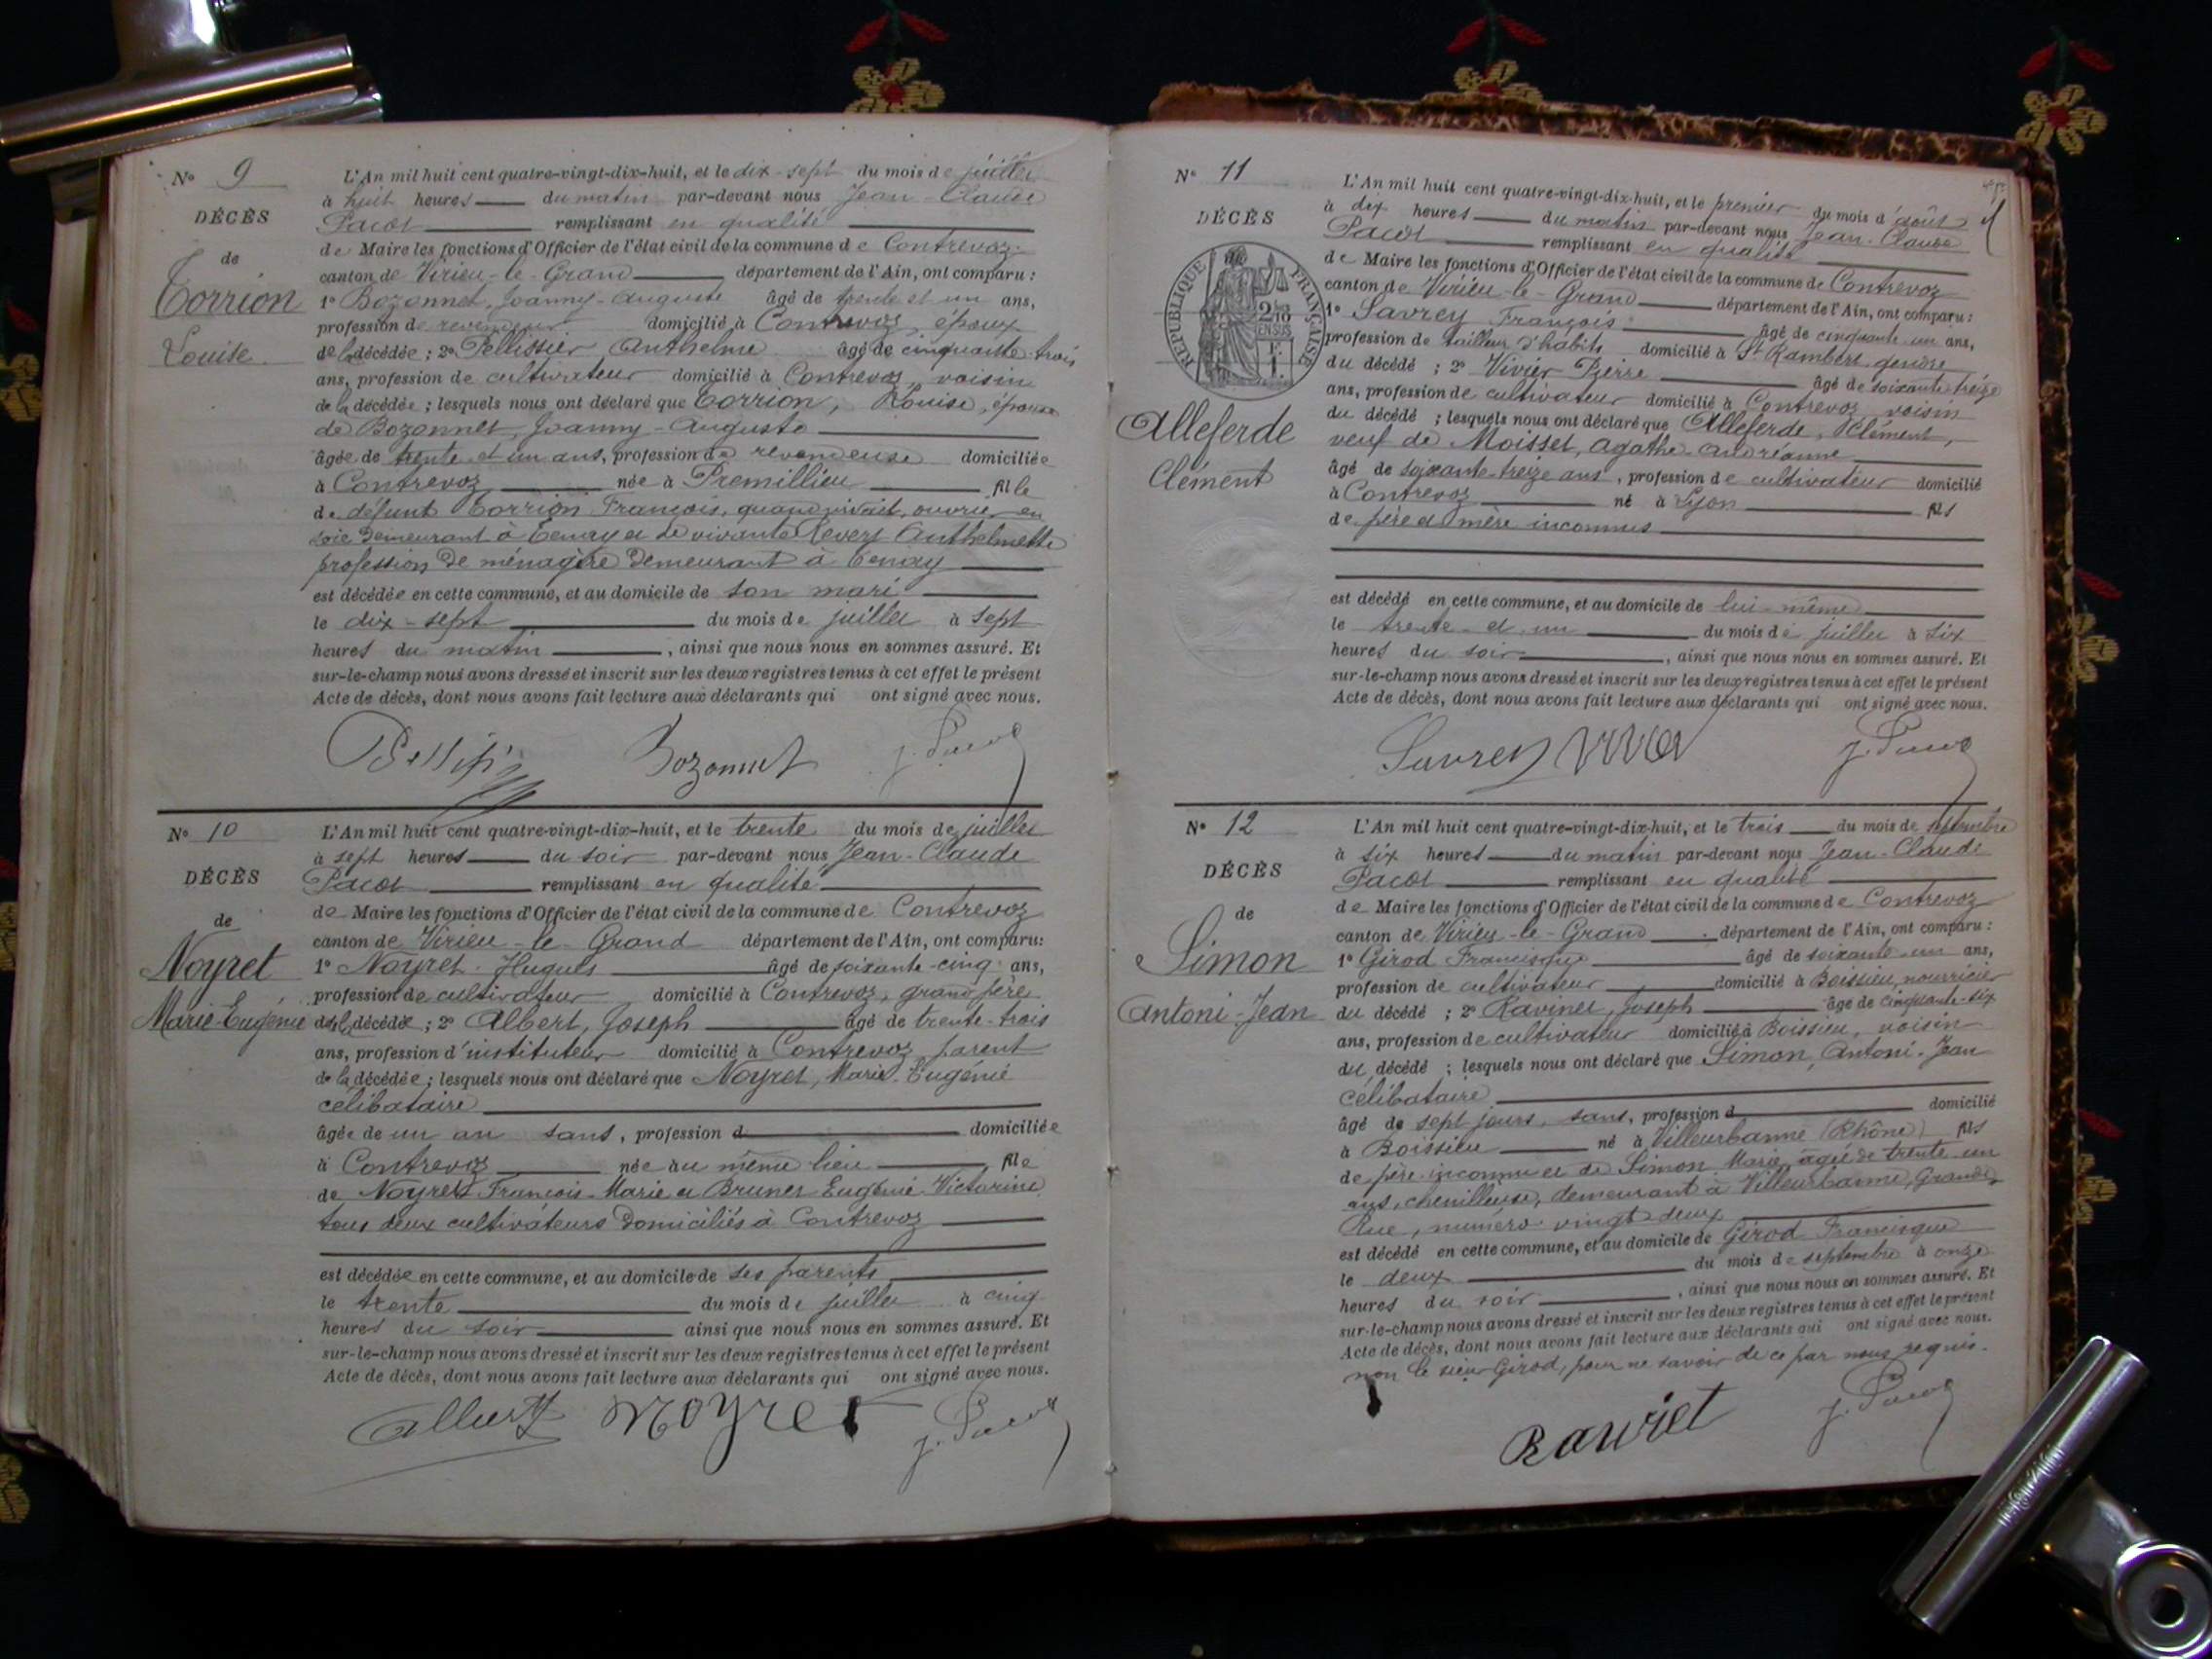 N° 9
DÉCÈS
de
Corrion
Louise
L'An mil huit cent quatre-vingt-dix-huit, et le dix-sept du mois de juillet
à huit heures du matin par-devant nous Jean-Claude
Pacot remplissant en qualité
de Maire les fonctions d'Officier de l'état civil de la commune de Contrevoz
canton de Virieu-le-Grand département de l'Ain, ont comparu :
1° Bozonnet, Joanny-Auguste âgé de trente et un ans,
profession de revendeur domicilié à Contrevoz, époux
de la décédée ; 2° Pellissier Anthelme âgé de cinquante-trois
ans, profession de cultivateur domicilié à Contrevoz, voisin
de la décédée ; lesquels nous ont déclaré que Corrion, Louise, épouse
de Bozonnet, Joanny-Auguste
âgée de trente et un ans, profession de revendeuse domiciliée
à Contrevoz née à Premillieu fille
de défunt Corrion François, quand vivait, ouvrier en
soie demeurant à Tenay et de vivante Revert Anthelmette
profession de ménagère demeurant à Tenay
est décédée en cette commune, et au domicile de son mari
le dix-sept du mois de juillet à sept
heures du matin, ainsi que nous nous en sommes assuré. Et
sur-le-champ nous avons dressé et inscrit sur les deux registres tenus à cet effet le présent
Acte de décès, dont nous avons fait lecture aux déclarants qui ont signé avec nous.
Bozonnet J. Pacot
N° 10
DÉCÈS
de
Noyret
Marie-Eugénie
L'An mil huit cent quatre-vingt-dix-huit, et le trente du mois de juillet
à sept heures du soir par-devant nous Jean-Claude
Pacot remplissant en qualité
de Maire les fonctions d'Officier de l'état civil de la commune de Contrevoz
canton de Virieu-le-Grand département de l'Ain, ont comparu :
1° Noyret Hugues âgé de soixante-cinq ans,
profession de cultivateur domicilié à Contrevoz, grand père
de la décédée ; 2° Albert, Joseph âgé de trente-trois
ans, profession d'instituteur domicilié à Contrevoz, parent
de la décédée ; lesquels nous ont déclaré que Noyret, Marie-Eugénie
célibataire
âgée de un an sans, profession d domiciliée
à Contrevoz née au même lieu fille
de Noyret François-Marie et Brunet Eugénie-Victorine
tous deux cultivateurs domiciliés à Contrevoz
est décédée en cette commune, et au domicile de ses parents
le trente du mois de juillet à cinq
heures du soir ainsi que nous nous en sommes assuré. Et
sur-le-champ nous avons dressé et inscrit sur les deux registres tenus à cet effet le présent
Acte de décès, dont nous avons fait lecture aux déclarants qui ont signé avec nous.
Albert Noyret J. Pacot
N° 11
DÉCÈS
RÉPUBLIQUE FRANÇAISE
2/10 EN SUS
Alleferde
Clément
L'An mil huit cent quatre-vingt-dix-huit, et le premier du mois d'août
à dix heures du matin par-devant nous Jean-Claude
Pacot remplissant en qualité
de Maire les fonctions d'Officier de l'état civil de la commune de Contrevoz
canton de Virieu-le-Grand département de l'Ain, ont comparu :
1° Savrey François âgé de cinquante-un ans,
profession de tailleur d'habits domicilié à St Rambert, gendre
du décédé ; 2° Vivier Pierre âgé de soixante-treize
ans, profession de cultivateur domicilié à Contrevoz, voisin
du décédé ; lesquels nous ont déclaré que Alleferde, Clément,
veuf de Moisset, Agathe-Andréanne
âgé de soixante-treize ans, profession de cultivateur domicilié
à Contrevoz né à Lyon fils
de père et mère inconnus
est décédé en cette commune, et au domicile de lui-même
le trente-et-un du mois de juillet à six
heures du soir, ainsi que nous nous en sommes assuré. Et
sur-le-champ nous avons dressé et inscrit sur les deux registres tenus à cet effet le présent
Acte de décès, dont nous avons fait lecture aux déclarants qui ont signé avec nous.
Savrey Vivier J. Pacot
N° 12
DÉCÈS
de
Simon
Antoni-Jean
L'An mil huit cent quatre-vingt-dix-huit, et le trois du mois de septembre
à six heures du matin par-devant nous Jean-Claude
Pacot remplissant en qualité
de Maire les fonctions d'Officier de l'état civil de la commune de Contrevoz
canton de Virieu-le-Grand département de l'Ain, ont comparu :
1° Girod Francisque âgé de soixante-un ans,
profession de cultivateur domicilié à Boissieu, nourricier
du décédé ; 2° Ravinet, Joseph âgé de cinquante-six
ans, profession de cultivateur domicilié à Boissieu, voisin
du décédé ; lesquels nous ont déclaré que Simon, Antoni-Jean
célibataire
âgé de sept jours, sans, profession d domicilié
à Boissieu né à Villeurbanne (Rhône) fils
de père inconnu et de Simon Marie, âgée de trente-un
ans, chenilleuse, demeurant à Villeurbanne, Grande
Rue, numéro vingt-deux
est décédé en cette commune, et au domicile de Girod Francisque
le deux du mois de septembre à onze
heures du soir, ainsi que nous nous en sommes assuré. Et
sur-le-champ nous avons dressé et inscrit sur les deux registres tenus à cet effet le présent
Acte de décès, dont nous avons fait lecture aux déclarants qui ont signé avec nous.
non le sieur Girod, pour ne savoir de ce par nous requis.
Raviet J. Pacot